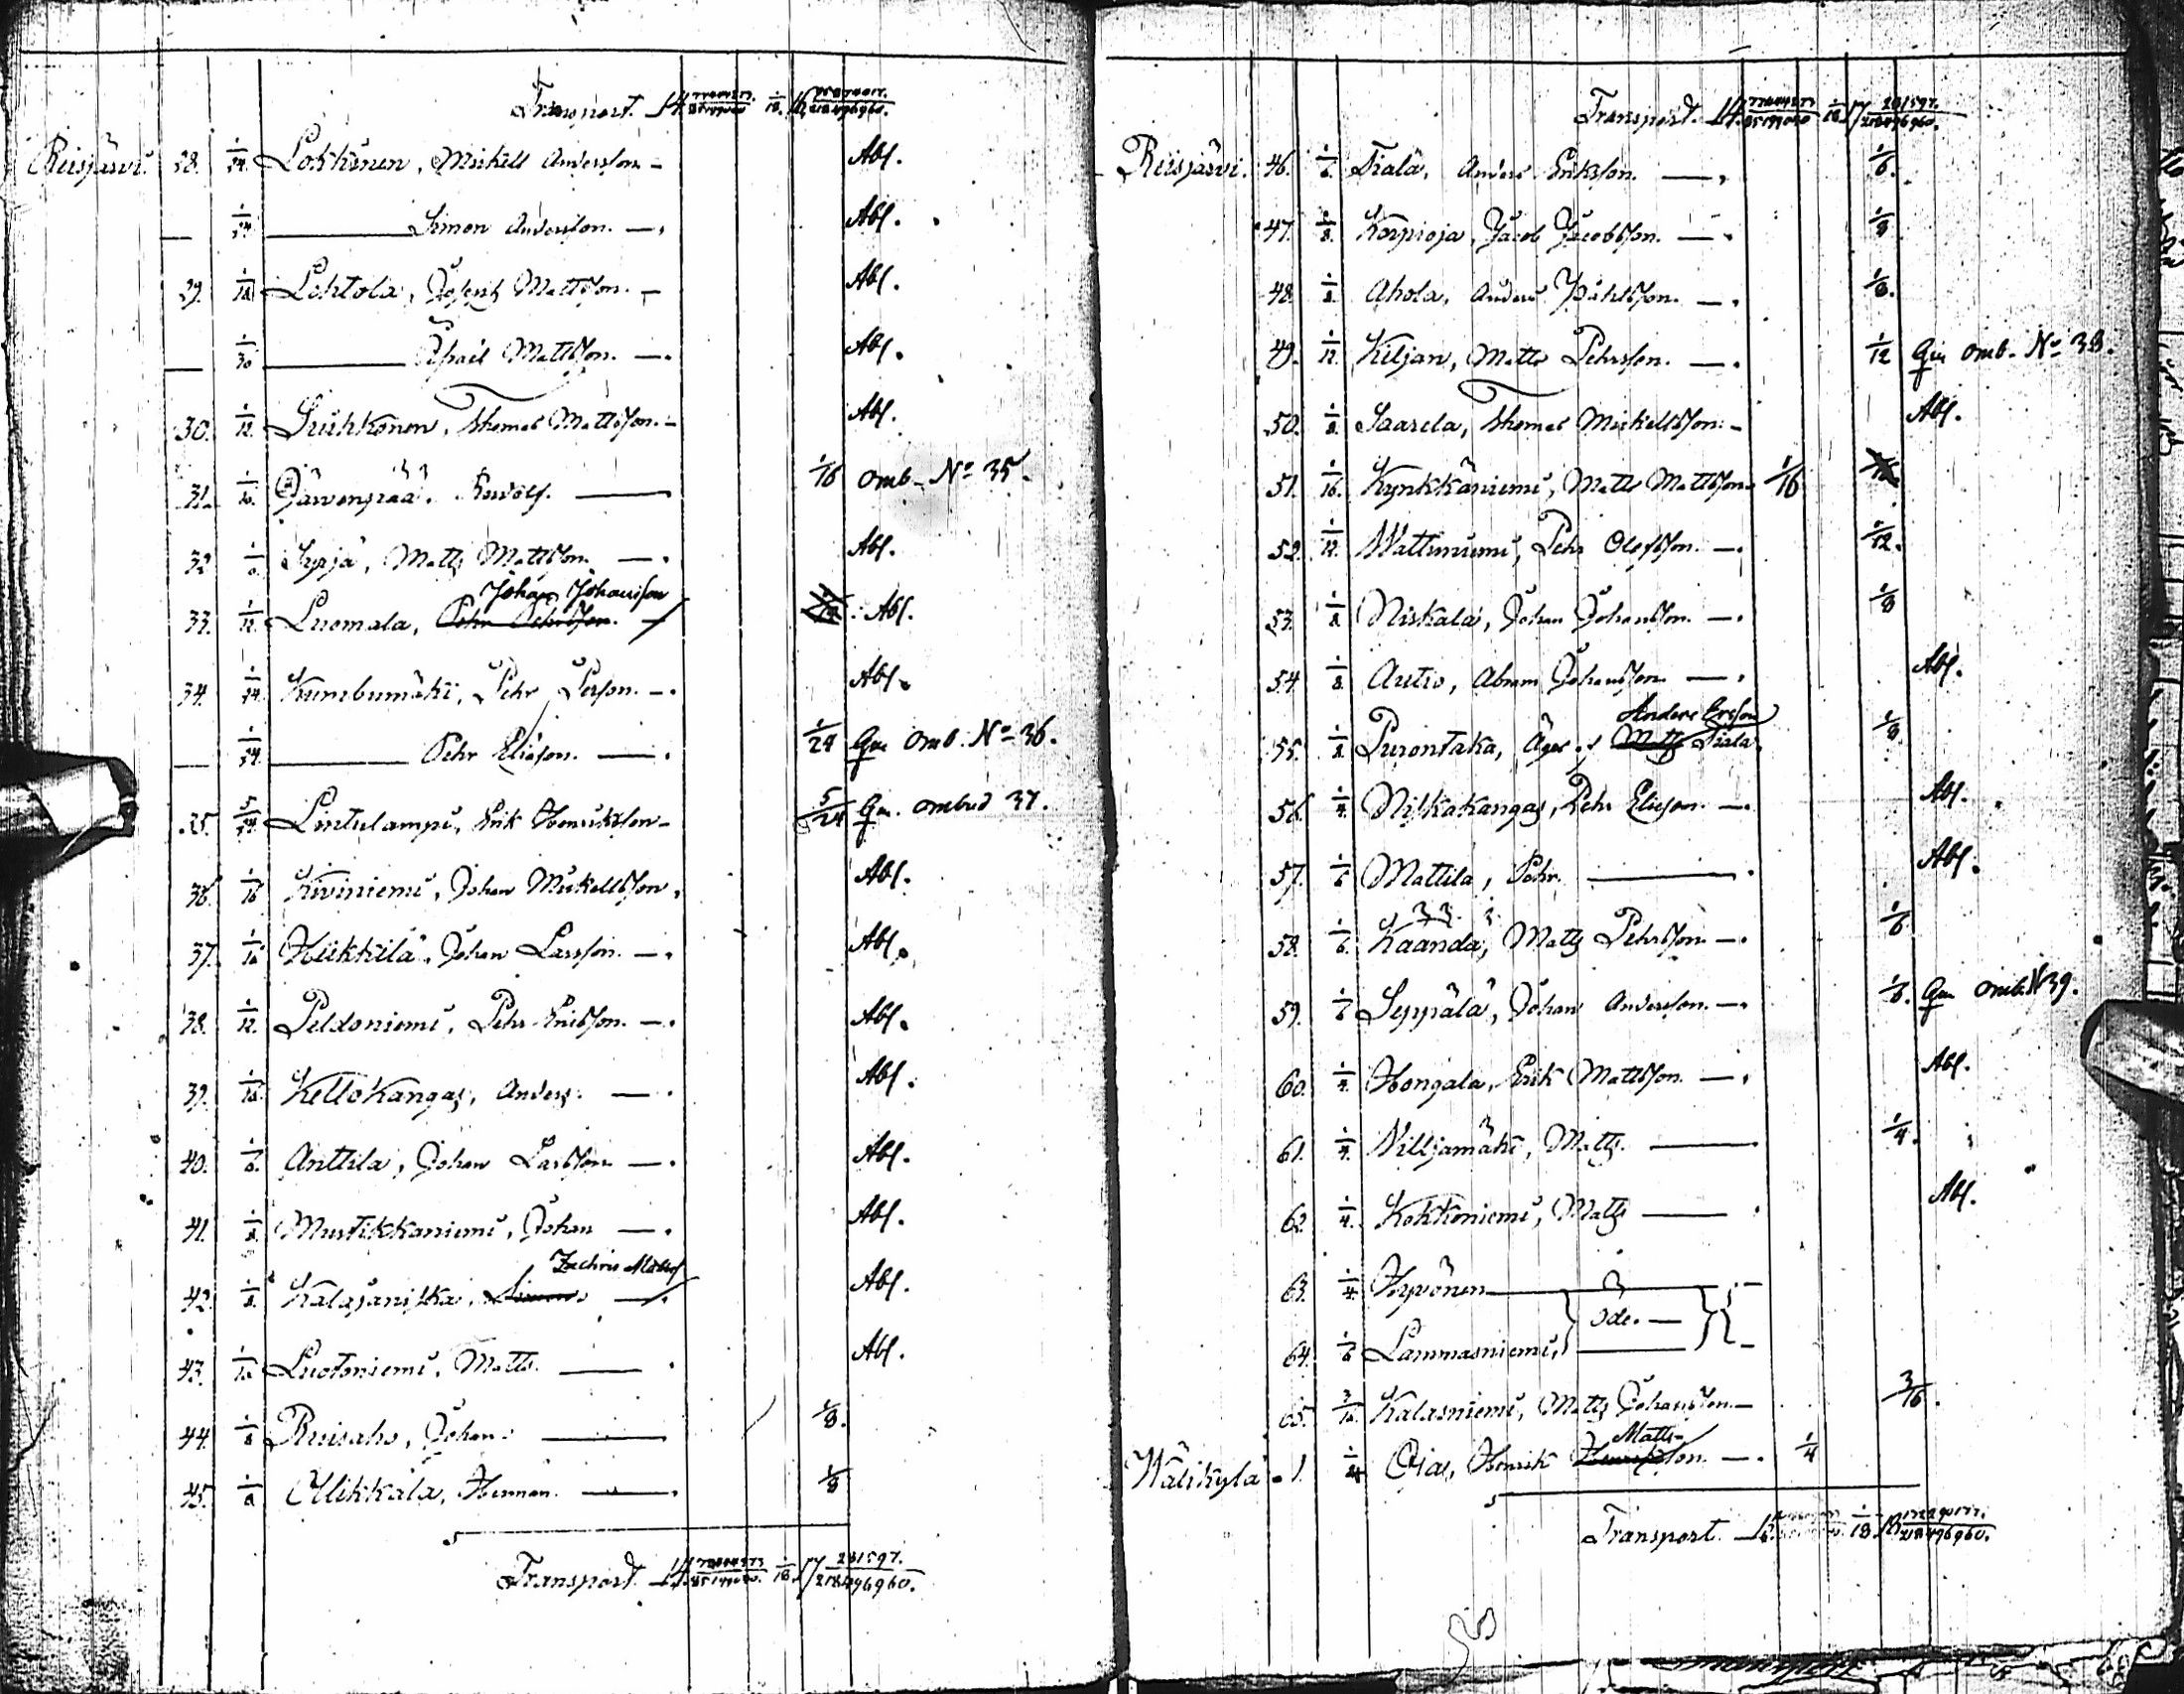 Transport. 14
Reisjärvi. 28. 1/24. Lokkinen, Mickell Andersson - Abs.
— 1/24 — Simon Andersson. — Abs.
29. Lehtola, Joseph Mattsson. - Abs.
— 1/30 — Mattsson. — Abs.
30. 1/12. Thomas Mattsson. - Abs.
31. Järvenpää. — 1/16 omb. No 35.
32 Syrjä, Matts Mattsson. — Abs.
Johan Johansson
33. 1/12. Luomala, Pehr Pehrsson. — Abs.
34. 1/24. Kumbumäki, Pehr Persson. — Abs.
— 1/24. — Pehr Eliasson. — 1/24 omb. No 36.
35. 5/24. Lintulampi, Erik Henriksson - 5/24 ombud 37.
36. 1/16 Kiviniemi, Johan Mickellsson, Abs.
37. 1/16 Heikkilä, Johan Larsson. — Abs.
38. 1/12. Peldoniemi, Pehr Ericsson. — Abs.
39. 1/16. Kellokangas, Anders. — Abs.
40. 1/6. Anttila, Johan Larsson — Abs.
41. 1/8 Mustikkaniemi, Johan — Abs.
42. 1/8. Kalajaniska, — Abs.
43. Luotoniemi, Matts. — Abs.
44. 1/8 Ruisaho, Johan. — 1/8.
45. 1/8 Ollikkala, Herman. — 1/8
Transport. 14 1/18. 17 281597./218496960.
Transport. 14 1/18 17 281597./218496960.
Reisjärvi. 46. 1/6. Tiala, Anders Eriksson. — 1/6.
47. 1/8. Korpioja, Jacob Jacobsson. — 1/8
48. 1/8. Ahola, Anders Påhlsson. — 1/8.
49. 1/12. Kiljan, Matts Pehrsson. — 1/12 omb. No 38.
50. 1/8. Saarela, Thomas Mickellsson. - Abs.
51. 1/16. Kynkkäniemi, Matts Mattsson 1/16
52. 1/12. Wattuniemi, Pehr Olofsson. — 1/12.
53. 1/8 Niskala, Johan Johansson. — 1/8
54. 1/8. Autio, Abram Johansson — Abs.
Anders Ersson
55. 1/8. Purontaka, äges af Matts Tiala 1/8
56. 1/4 Niskakangas, Pehr Eliasson. — Abs.
57. 1/6 Mattila, Pehr. — Abs.
58. 1/6. Kaanda, Matts Pehrsson — 1/6
59. 1/6 Seppälä, Johan Andersson. — 1/6. omb. N 39.
60. 1/4. Hongala, Erik Mattsson. — Abs.
61. 1/4. Nilljamäki, Matts. — 1/4.
62. 1/4. Kokkoniemi, Matts — Abs.
63. 1/4 Hyvönen —
Öde. —
64. 1/6 Lammasniemi, —
65. 3/16. Kalasniemi, Matts Johansson — 3/16.
Matts-
Wälikylä 1. 1/4 Oja, Henrik Henriksson. — 1/4
Transport.